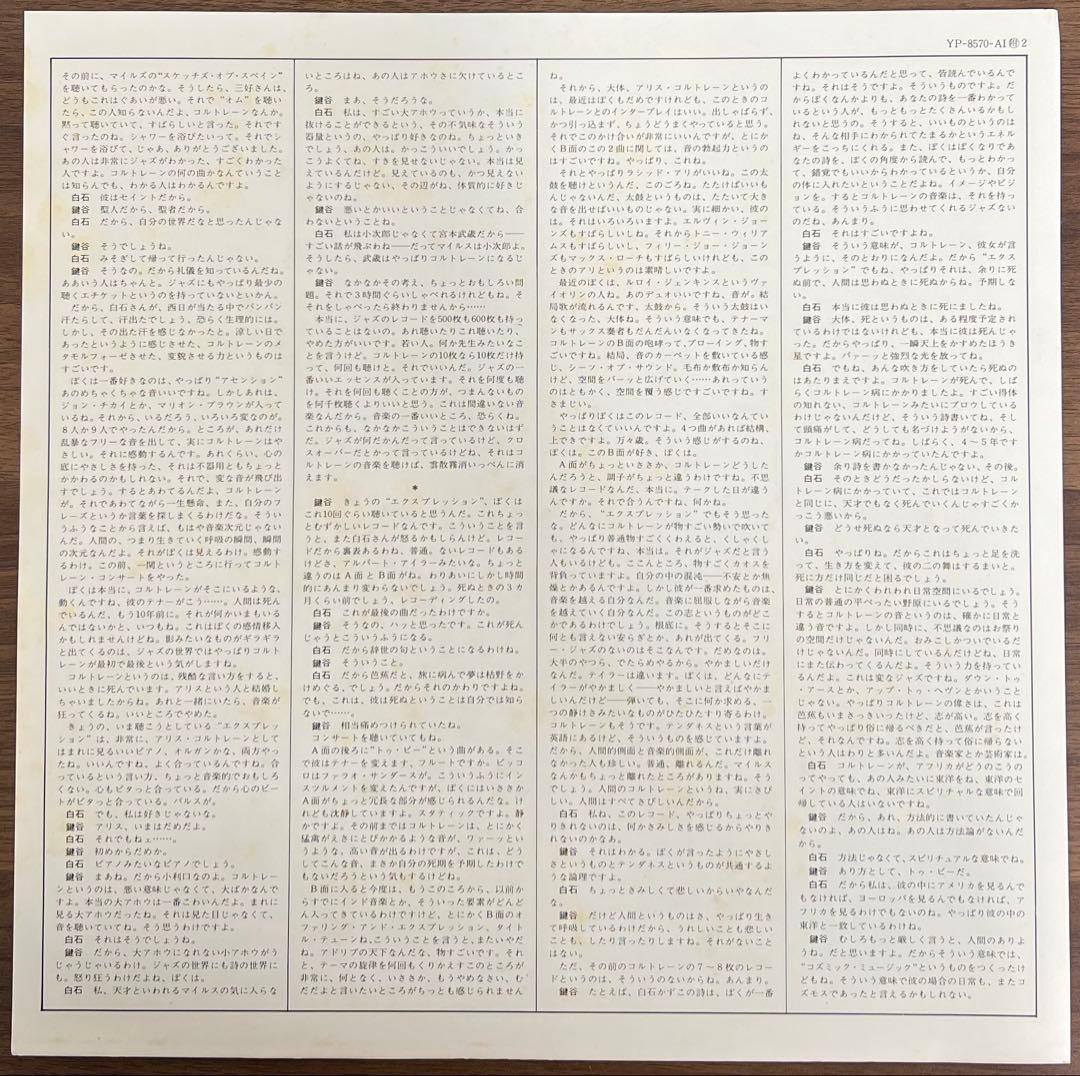 YP-8570-AI㊞2
その前に、マイルズの“スケッチズ・オブ・スペイン”
を聴いてもらったのかな。そうしたら、三好さんは、
どうもこれはぐあいが悪い。それで“オム”を聴い
たら、この人知らないんだよ、コルトレーンなんか。
黙って聴いていて、すばらしいと言った。それです
ぐ言ったのね。シャワーを浴びたいって。それでシ
ャワーを浴びて、じゃあ、ありがとうございました。
あの人は非常にジャズがわかった、すごくわかった
人ですよ。コルトレーンの何の曲かなんていうこと
は知らんでも、わかる人はわかるんですよ。
白石 彼はセイントだから。
鍵谷 聖人だから、聖者だから。
白石 だから、自分の世界だなと思ったんじゃな
い。
鍵谷 そうでしょうね。
白石 みそぎして帰って行ったんじゃない。
鍵谷 そうなの。だから礼儀を知っているんだね。
ああいう人はちゃんと。ジャズにもやっぱり最少の
聴くエチケットというのを持っていないといかん。
だから、白石さんが、西日が当たる中でバンバン
汗たらして、汗出たでしょう、恐らく生理的には。
しかし、その出た汗を感じなかったと。涼しい日で
あったというように感じさせた、コルトレーンのメ
タモルフォーゼさせた、変貌させる力というものは
すごいです。
ぼくは一番好きなのは、やっぱり“アセンション”
あのめちゃくちゃな音いいですね。しかしあれは、
ジョン・チカイとか、マリオン・ブラウンが入って
いるね。それから、いるだろう、いろいろ変なのが。
8人か9人でやったんだから。ところが、あれだけ
乱暴なフリーな音を出して、実にコルトレーンはや
さしい。それに感動するんです。あれくらい、心の
底にやさしさを持った、それは不器用ともちょっと
かかわるのかもしれない。それで、変な音が飛び出
すでしょう。するとあわてるんだよ、コルトレーン
が。それであわてながら一生懸命、また、自分のフ
レーズというか言葉を探しまくるわけだな。そうい
うふうなことから言えば、もはや音楽次元じゃない
んだ。人間の、つまり生きていく呼吸の瞬間、瞬間
の次元なんだよ。それがぼくは見えるわけ。感動す
るわけ。この前、一関というところに行ってコルト
レーン・コンサートをやった。
ぼくは本当に、コルトレーンがそこにいるような、
動くんですね、彼のテナーがこう……。人間は死ん
でいるんだ、もう10年前に。それが何かいまもいる
んではないかと、いつもね。これはぼくの感情移入
かもしれませんけどね。影みたいなものがギラギラ
と出てくるのは、ジャズの世界ではやっぱりコルト
レーンが最初で最後という気がしますね。
コルトレーンというのは、残酷な言い方をすると、
いいときに死んでいます。アリスという人と結婚し
ちゃいましたからね。あれと一緒にいたら、音楽が
狂ってくるね。いいところでやめた。
きょうの、いま聴こうとしている“エクスプレッシ
ョン”は、非常に、アリス・コルトレーンとして
はまれに見るいいピアノ、オルガンかな、両方やっ
たね。いいですね、よく合っているんですね。合
っているという言い方、ちょっと音楽的でおもしろ
くない。心もピタっと合っている。だから心のビー
トがピタっと合っている。パルスが。
白石 でも、私は好きじゃないな。
鍵谷 アリス、いまはだめだよ。
白石 それでもねェ……。
鍵谷 初めからだめか。
白石 ピアノみたいなピアノでしょう。
鍵谷 まあね。だから小利口なのよ。コルトレー
ンというのは、悪い意味じゃなくて、大ばかなんで
すよ。本当の大アホウは一番こわいんだよ。まれに
見る大アホウだったね。それは見た目じゃなくて、
音を聴いていてね。そう思うわけですよ。
白石 それはそうでしょうね。
鍵谷 だから、大アホウになれない小アホウがう
じゃうじゃいるわけ。ジャズの世界にも詩の世界に
も。怒り狂うわけだよね、ぼくは。
白石 私、天才といわれるマイルスの気に入らな
いところはね、あの人はアホウさに欠けているとこ
ろ。
鍵谷 まあ、そうだろうな。
白石 私は、すごい大アホウっていうか、本当に
抜けることができるという、その不気味なそういう
器量というの、やっぱり好きなのね。ちょっといき
でしょう、あの人は。かっこういいでしょう。かっ
こうよくてね、すきを見せないじゃない。本当は見
えているんだけど。見えているのも、かつ見えない
ようにするじゃない、その辺がね、体質的に好きじ
ゃないのね。
鍵谷 悪いとかいいということじゃなくてね、合
わないということね。
白石 私は小次郎じゃなくて宮本武蔵だから――
すごい話が飛ぶわね――だってマイルスは小次郎よ。
そうしたら、武蔵はやっぱりコルトレーンになるじ
ゃない。
鍵谷 なかなかその考え、ちょっとおもしろい問
題。それで3時間ぐらいしゃべれるけどもね。そ
それをしゃべったら終わりませんから……
本当に、ジャズのレコードを500枚も600枚も持っ
ていることはないの。あれ聴いたりこれ聴いたり、
やめた方がいいです。若い人。何か先生みたいなこ
とを言うけど。コルトレーンの10枚なら10枚だけ持
って、何回も聴けと。それでいいんだ。ジャズの一
番いいエッセンスが入っています。それを何度も聴
け。それを何回も聴くことの方が、つまんないもの
を何千枚聴くよりいいと思う。これは間違いない音
楽なんだから。音楽の一番いいところ、恐らくね。
これからも、なかなかこういうことはできないはず
だ。ジャズが何だかんだって言っているけど、クロ
スオーバーだとかって言っているけどね、それはコ
ルトレーンの音楽を聴けば、雲散霧消いっぺんに消
えます。
*
鍵谷 きょうの“エクスプレッション”、ぼくは
これ10回ぐらい聴いていると思うんだ。これちょっ
とむずかしいレコードなんです。こういうことを言
うと、また白石さんが怒るかもしらんけど。レコー
ドだから裏表あるわね、普通。ないレコードもある
けどさ、アルバート・アイラーみたいな。ちょっと
違うのはA面とB面がね。わりあいにしかし時間
的にあんまり変わらないでしょう。死ぬときの3カ
月くらい前でしょう、レコーディングしたの。
白石 これが最後の曲だったわけですか。
鍵谷 そうなの、ハッと思ったです。これが死ん
じゃうとこういうふうになる。
白石 だから辞世の句ということになるわけね。
鍵谷 そういうこと。
白石 だから芭蕉だと、旅に病んで夢は枯野をか
けめぐる、でしょう。だからそれのかわりですよね。
でも、これは、彼は死ぬということは自分では知ら
ないで……。
鍵谷 相当痛めつけられていたね。
コンサートを聴いていてもね。
A面の後ろに“トゥ・ビー”という曲がある。そこ
で彼はテナーを変えます、フルートですか。ピッコ
ロはファラオ・サンダースが。こういうふうにイン
スツルメントを変えたんですが、ぼくにはいささか
A面がちょっと冗長な部分が感じられるんだな。け
れども沈静していますよ。スタティックですよ。静
かですよ。その前まではコルトレーンは、とにかく
猛禽がえさにとびかかるような音が、ワァーッとい
うような、高い音が出るわけですが、これは、どう
してこんな音、まさか自分の死期を予期したわけで
もないだろうという気もするけどね。
B面に入ると今度は、もうこのころから、以前か
らすでにインド音楽とか、そういった要素がどんど
ん入ってきているわけですけど、とにかくB面のオ
ファリング・アンド・エクスプレッション、タイト
ル・テューンね、こういうことを言うと、またいやだ
ね。アドリブの天下なんだな、物すごいです。それ
と、テーマの旋律を何回もくりかえすこのところが
非常に、何となく、いささか、もうやめなさい、む
だだよと言いたいところがちっとも感じられません
ね。
それから、大体、アリス・コルトレーンというの
は、最近はぼくもだめですけれども、このときのコ
ルトレーンとのインタープレイはいい。出しゃばらず、
かつ引っ込まず、ちょうどうまくやっていると思う。
それでこのかけ合いが非常にいいんですが、とにか
くB面のこの2曲に関しては、音の勃起力というの
はすごいですね。やっぱり、これね。
それとやっぱりラシッド・アリがいいね。この太
鼓を聴けというんだ、このごろね。たたけばいいも
んじゃないんだ、太鼓というものは、たたいて大き
な音を出せばいいものじゃない。実に細かい、彼の
は。それはいろいろいますよ。エルヴィン・ジョー
ンズもすばらしいしね。それからトニー・ウィリア
ムスもすばらしいし、フィリー・ジョー・ジョーン
ズもマックス・ローチもすばらしいけれども、この
ときのアリというのは素晴しいですよ。
最近のぼくは、ルロイ・ジェンキンスというヴァ
イオリンの人ね。あのデュオいいですね、音が。結
局歌が流れるんです、太鼓から。そういう太鼓はい
なくなった、大体ね。そういう意味でも、テナーマ
ンもサックス奏者もだんだんいなくなってきたね。
コルトレーンのB面の咆哮って、ブローイング、物す
ごいですね。結局、音のカーペットを敷いている感
じ、シーツ・オブ・サウンド。毛布か敷布か知らん
けど、空間をパーッと広げていく……あれっていう
のはともかく、空間を覆う感じですごいですね。す
さまじい。
やっぱりぼくはこのレコード、全部いいなんてい
うことはなくていいんですよ。4つ曲があれば結構、
上できですよ。万々歳。そういう感じがするのね、
ぼくは。このB面が好き、ぼくは。
A面がちょっといささか、コルトレーンどうした
んだろうと、調子がちょっと違うわけですね。不思
議なレコードなんだ、本当に。テークした日が違う
んですか。それで合うんですね、何かね。
だから、“エクスプレッション”でもそう思った
な。どんなにコルトレーンが物すごい勢いで吹いて
も、やっぱり普通物すごくくわえると、くしゃくし
ゃになるんですね、本当は。それがジャズだと言う
人もいるけど。ここんところ、物すごくカオスを
背負っていますよ。自分の中の混沌――不安とか焦
燥とかあるんですよ。しかし彼が一番求めたものは、
音楽を越える自分なんだ。音楽に屈服しながら音楽
を越えていく自分なんだ。この志というものがどこ
かであるわけでしょう。根底に。そうするとそこに
何とも言えない安らぎとか、あれが出てくる。フリ
ー・ジャズのないのはそこなんです。だめなのは。
大半のやつら、でたらめやるから。やかましいだけ
なんだ。テイラーは違います。ぼくは、どんなにテ
イラーがやましく――やかましいと言えばやかまし
いんだけど――弾いても、そこに何か求める、一
つの静けさみたいなものがひたひたすり寄るわけ。
コルトレーンもそうです。テンダネスという言葉が
英語にあるけど、そういうものを感じていますよ。
だから、人間的側面と音楽的側面が、これだけ離れ
なかった人も珍しい。普通、離れるんだ。マイルス
なんかもちょっと離れたところがありますね。そう
でしょう。人間のコルトレーンというね、実にさび
しい。人間はすべてさびしいんだから。
白石 私ね、このレコード、やっぱりちょっとや
りきれないのは、何かさみしさを感じるからやりき
れないのかなあ。
鍵谷 それはわかる。ぼくが言ったようにやさし
さというものとテンダネスというものが共通するよ
うな論理ですよ。
白石 ちょっときみしくて悲しいからいやなんだ
な。
鍵谷 だけど人間というものはさ、やっぱり生き
て呼吸しているわけだから、うれしいことも悲しい
ことも、したり言ったりしますね。それがないこと
はない。
ただ、その前のコルトレーンの7〜8枚のレコー
ドというのは、そういうのないからね。あんまり。
鍵谷 たとえば、白石かずこの詩は、ぼくが一番
よくわかっているんだと思って、皆読んでいるんで
すね。それはそうですよ。そういうものですよ。だ
からぼくなんかよりも、あなたの詩を一番わかって
いるという人が、もっともっとたくさんいるかもし
れないと思うの。そうすると、いいものというのは
ね、そんな相手にわかられてたまるかというエネル
ギーをこっちにくれる。また、ぼくはぼくなりであ
なたの詩を、ぼくの角度から読んで、もっとわかっ
て、錯覚でもいいからわかっているというか、自分
の体に入れたいということだよね。イメージやビジ
ョンを。するとコルトレーンの音楽は、それを持っ
ている。そういうふうに思わせてくれるジャズない
のだね、あんまり。
白石 それはすごいですよね。
鍵谷 そういう意味が、コルトレーン、彼女が言
うように、そのとおりになんだよ。だから“エクス
プレッション”でもね、やっぱりそれは、余りに死
ぬ前で、人間は思わぬときに死ぬからね。予期しな
い。
白石 本当に彼は思わぬときに死にましたね。
鍵谷 大体、死というものは、ある程度予定され
ているわけではないけれども、本当に彼は死んじゃ
った。だからやっぱり、一瞬天上をかすめたほうき
星ですよ。パァーッと強烈な光を放ってね。
白石 でもね、あんな吹き方をしていたら死ぬの
はあたりまえですよ。コルトレーンが死んで、しば
らくコルトレーン病にかかりましたよ。すごい得体
の知れない、コルトレーンみたいにブロウしている
わけじゃないんだけど、そういう詩書いてね、そし
て頭痛がして、どうしても名づけようがないから、
コルトレーン病だってね。しばらく、4〜5年です
かコルトレーン病にかかっていたんですよ。
鍵谷 余り詩を書かなかったんじゃない、その後。
白石 そのときどうだったかしらないけど、コル
トレーン病にかかっていて、これではコルトレーン
と同じに、天才でもなく死んでいくんじゃすごくか
っこう悪いから。
鍵谷 どうせ死ぬなら天才となって死んでいきた
い。
白石 やっぱりね。だからこれはちょっと足を洗
って、生き方を変えて、彼の二の舞はするまいと。
死に方だけ同じだと困るでしょう。
鍵谷 とにかくわれわれ日常空間にいるでしょう。
日常の普通の平べったい野原にいるでしょう。そう
するとコルトレーンの音というのは、確かに日常と
違う音ですよ。しかし同時に、不思議なのはお祭り
の空間だけじゃないんだ。おみこしかついでいるだ
けじゃないんだ。同時にしているんだけどね、日常
にまた伝わってくるんだよ。そういう力を持ってい
るんだよ。これは変なジャズですね。ダウン・トゥ
・アースとか、アップ・トゥ・ヘヴンとかいうこと
じゃない。やっぱりコルトレーンの偉さは、これは
芭蕉もいまさっきいったけど、志が高い。志を高く
持ってやっぱり俗に帰るべきだと、芭蕉が言ったけ
ど、それなんですね。志を高く持って俗に帰らない
という人はわりと多いんだよ。音楽家とか芸術家は。
白石 コルトレーンが、アフリカがどうのこうの
ってやっても、あの人みたいに東洋をね、東洋のセ
イントの意味でね、東洋にスピリチャルな意味で回
帰している人はいないですね。
鍵谷 だから、あれ、方法的に書いていたんじゃ
ないのよ、あの人はね。あの人は方法論がないんだ
から。
白石 方法じゃなくて、スピリチュアルな意味でね。
鍵谷 あり方として、トゥ・ビーだ。
白石 だから私は、彼の中にアメリカを見るんで
もなければ、ヨーロッパを見るんでもなければ、ア
フリカを見るわけでもないのね。やっぱり彼の中の
東洋と一致しているわけね。
鍵谷 むしろもっと厳しく言うと、人間のありよ
うね。だと思いますよ。だからそういう意味では、
“コズミック・ミュージック”というものをつくったけ
どもね。そういう意味で彼の場合の日常も、またコ
ズモスであったと言えるかもしれない。